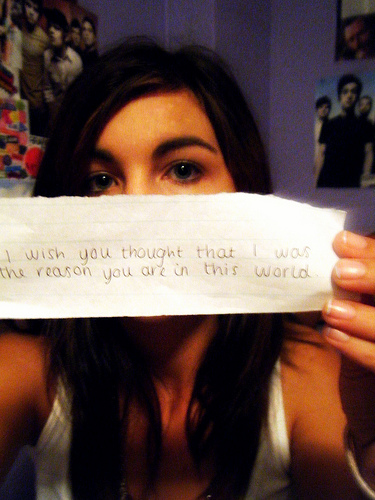 I wish you thought that I was
the reason you are in this world.